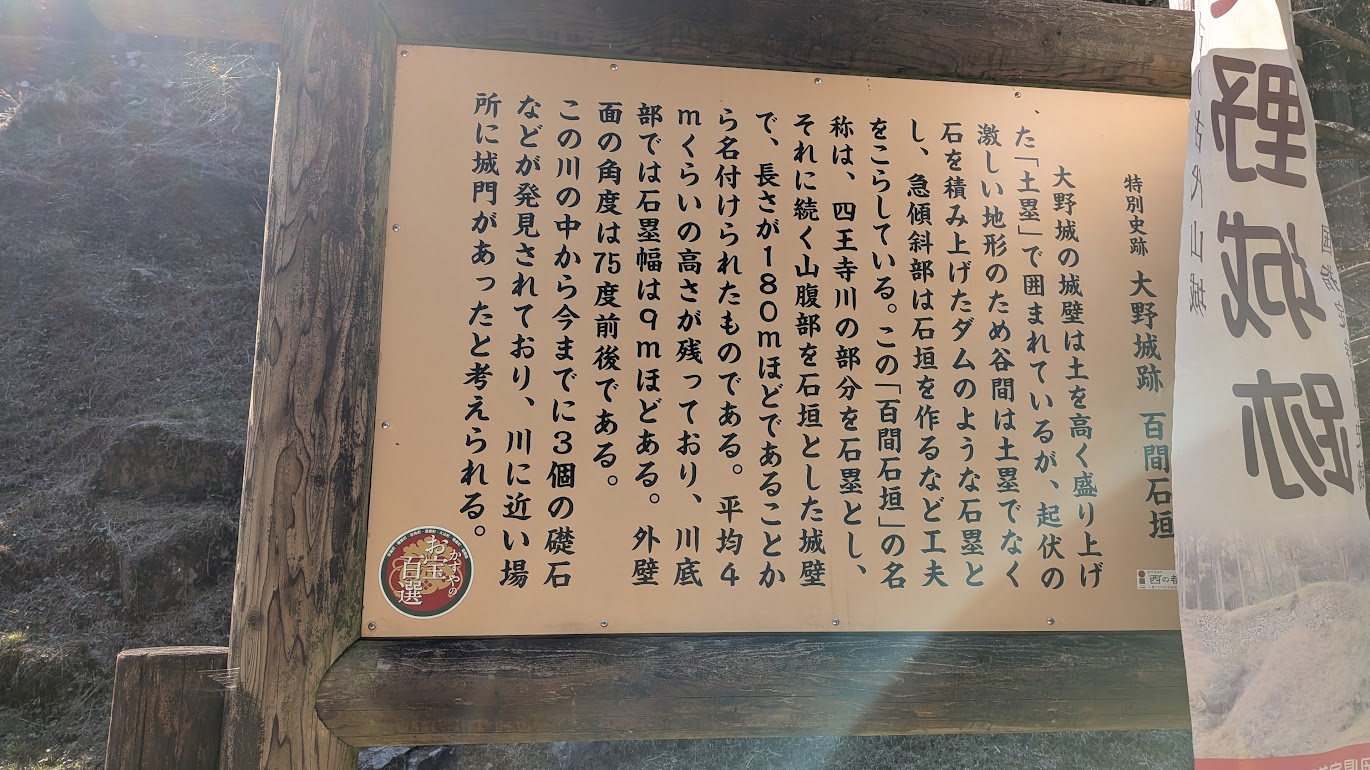 特別史跡 大野城跡 百間石垣
大野城の城壁は土を高く盛り上げ
た「土塁」で囲まれているが、起伏の
激しい地形のため谷間は土塁でなく
石を積み上げたダムのような石塁と
し、急傾斜部は石垣を作るなど工夫
をこらしている。この「百間石垣」の名
称は、四王寺川の部分を石塁とし、
それに続く山腹部を石垣とした城壁
で、長さが180mほどであることか
ら名付けられたものである。平均4
mくらいの高さが残っており、川底
部では石塁幅は9mほどある。外壁
面の角度は75度前後である。
この川の中から今までに3個の礎石
などが発見されており、川に近い場
所に城門があったと考えられる。
かすやの
お宝
百選
西の都
野城跡
古代山城